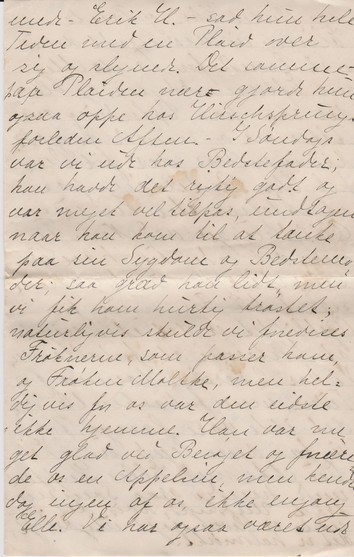 med - Erik H. - sad hun hele
Tiden med en Plaid over
sig og
paa Plaiden gjorde hun
ogsaa oppe hos Hirschsprungs
forleden Aften - I Søndags
var vi ude hos Bedstefader;
han havde det rigtig godt og
var meget vel tilpas, undtagen
naar han kom til at tænke
paa sin Sygdom og Bedstemo-
der; saa græd han lidt, men
vi fik ham hurtig trøstet;
naturligvis skulde vi
Frøknerne, som passer ham,
og Frøken Moltke, men hel-
digvis for os var den sidste
ikke hjemme. Han var me-
get glad ved Besøget og
de os en Appelsin, men kendte
dog ingen af os, ikke engang
Elle. Vi har ogsaa været